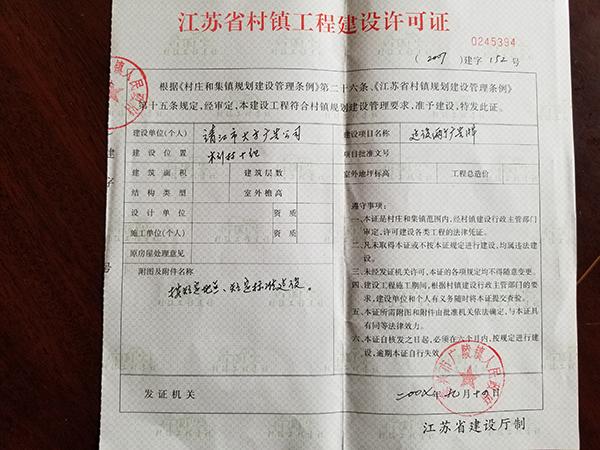 江苏省村镇工程建设许可证
0245394
(2007)建字 152 号
根据《村庄和集镇规划建设管理条例》第二十六条、《江苏省村镇规划建设管理条例》
第十五条规定,经审定,本建设工程符合村镇规划建设管理要求,准予建设,特发此证。
建设单位(个人) 靖江市大方广告公司 建设项目名称
建设位置 项目批准文号
建筑面积 建筑层数 室外地坪标高 工程总造价
结构类型 室外檐高
设计单位 资质
施工单位(个人) 资质
原房屋处理意见
附图及附件名称
按规定地点、规定标准建设。
发证机关
遵守事项:
一、本证是村庄和集镇范围内,经村镇建设行政主管部门
审定,许可建设各类工程的法律凭证。
二、凡未取得本证或不按本证规定进行建设,均属违法建
设。
三、未经发证机关许可,本证的各项规定均不得随意变更。
四、建设工程施工期间,根据村镇建设行政主管部门的要
求,建设单位和个人有义务随时将本证提交查验。
五、本证所需附图和附件由批准机关依法确定,与本证具
有同等法律效力。
六、本证自核发之日起,必须在六个月内,按规定进行建
设,逾期本证自行失效。
江苏省建设厅制
建
字
号